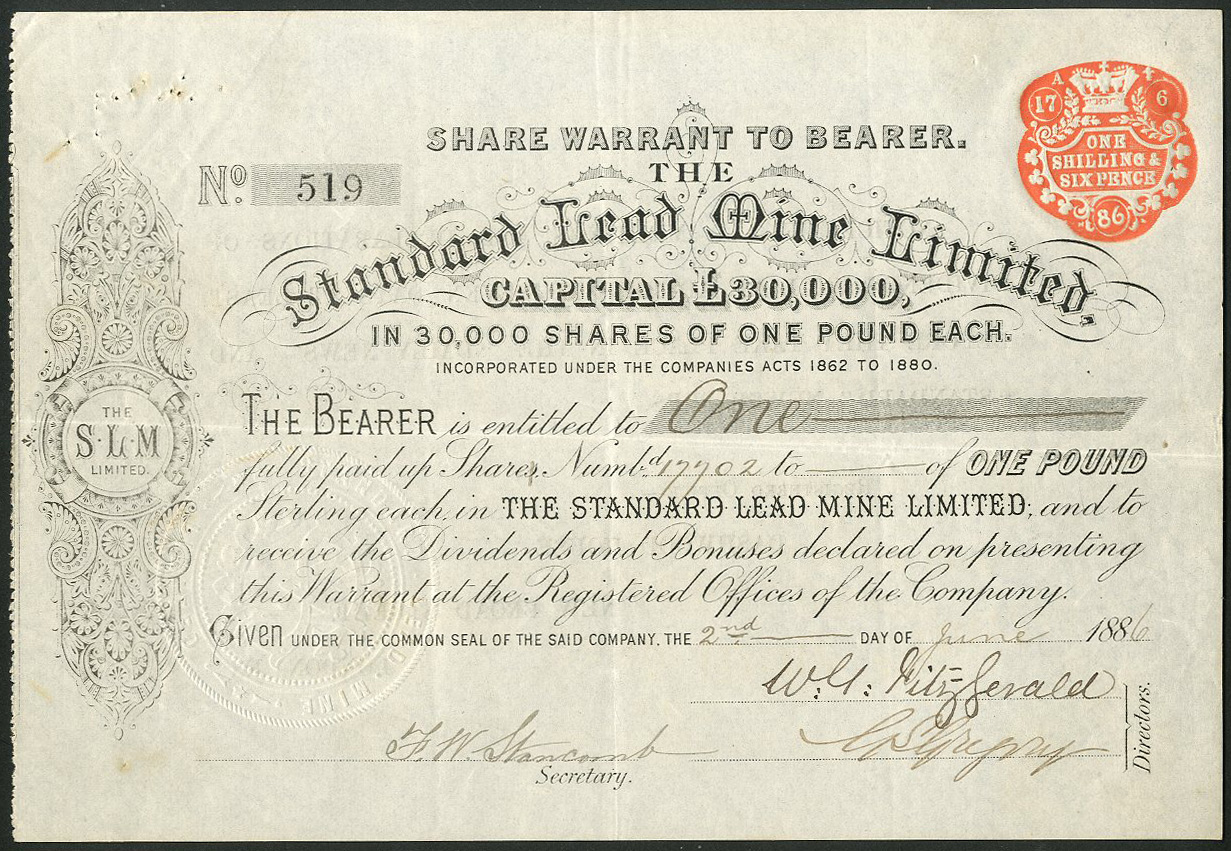 SHARE WARRANT TO BEARER.
No. 519
THE
Standard Lead Mine Limited.
CAPITAL £30,000,
IN 30,000 SHARES OF ONE POUND EACH.
INCORPORATED UNDER THE COMPANIES ACTS 1862 TO 1880.
A 4
17 6
ONE
SHILLING &
SIXPENCE
86
THE
S·L·M
LIMITED.
THE BEARER is entitled to One
fully paid up Shares, Numbd. 17702 to of ONE POUND
Sterling each, in THE STANDARD LEAD MINE LIMITED, and to
receive the Dividends and Bonuses declared on presenting
this Warrant at the Registered Offices of the Company.
Given UNDER THE COMMON SEAL OF THE SAID COMPANY, THE 2nd DAY OF June 1886
W. G. FitzGerald
Gregory
Directors.
F. W. Stancomb
Secretary.